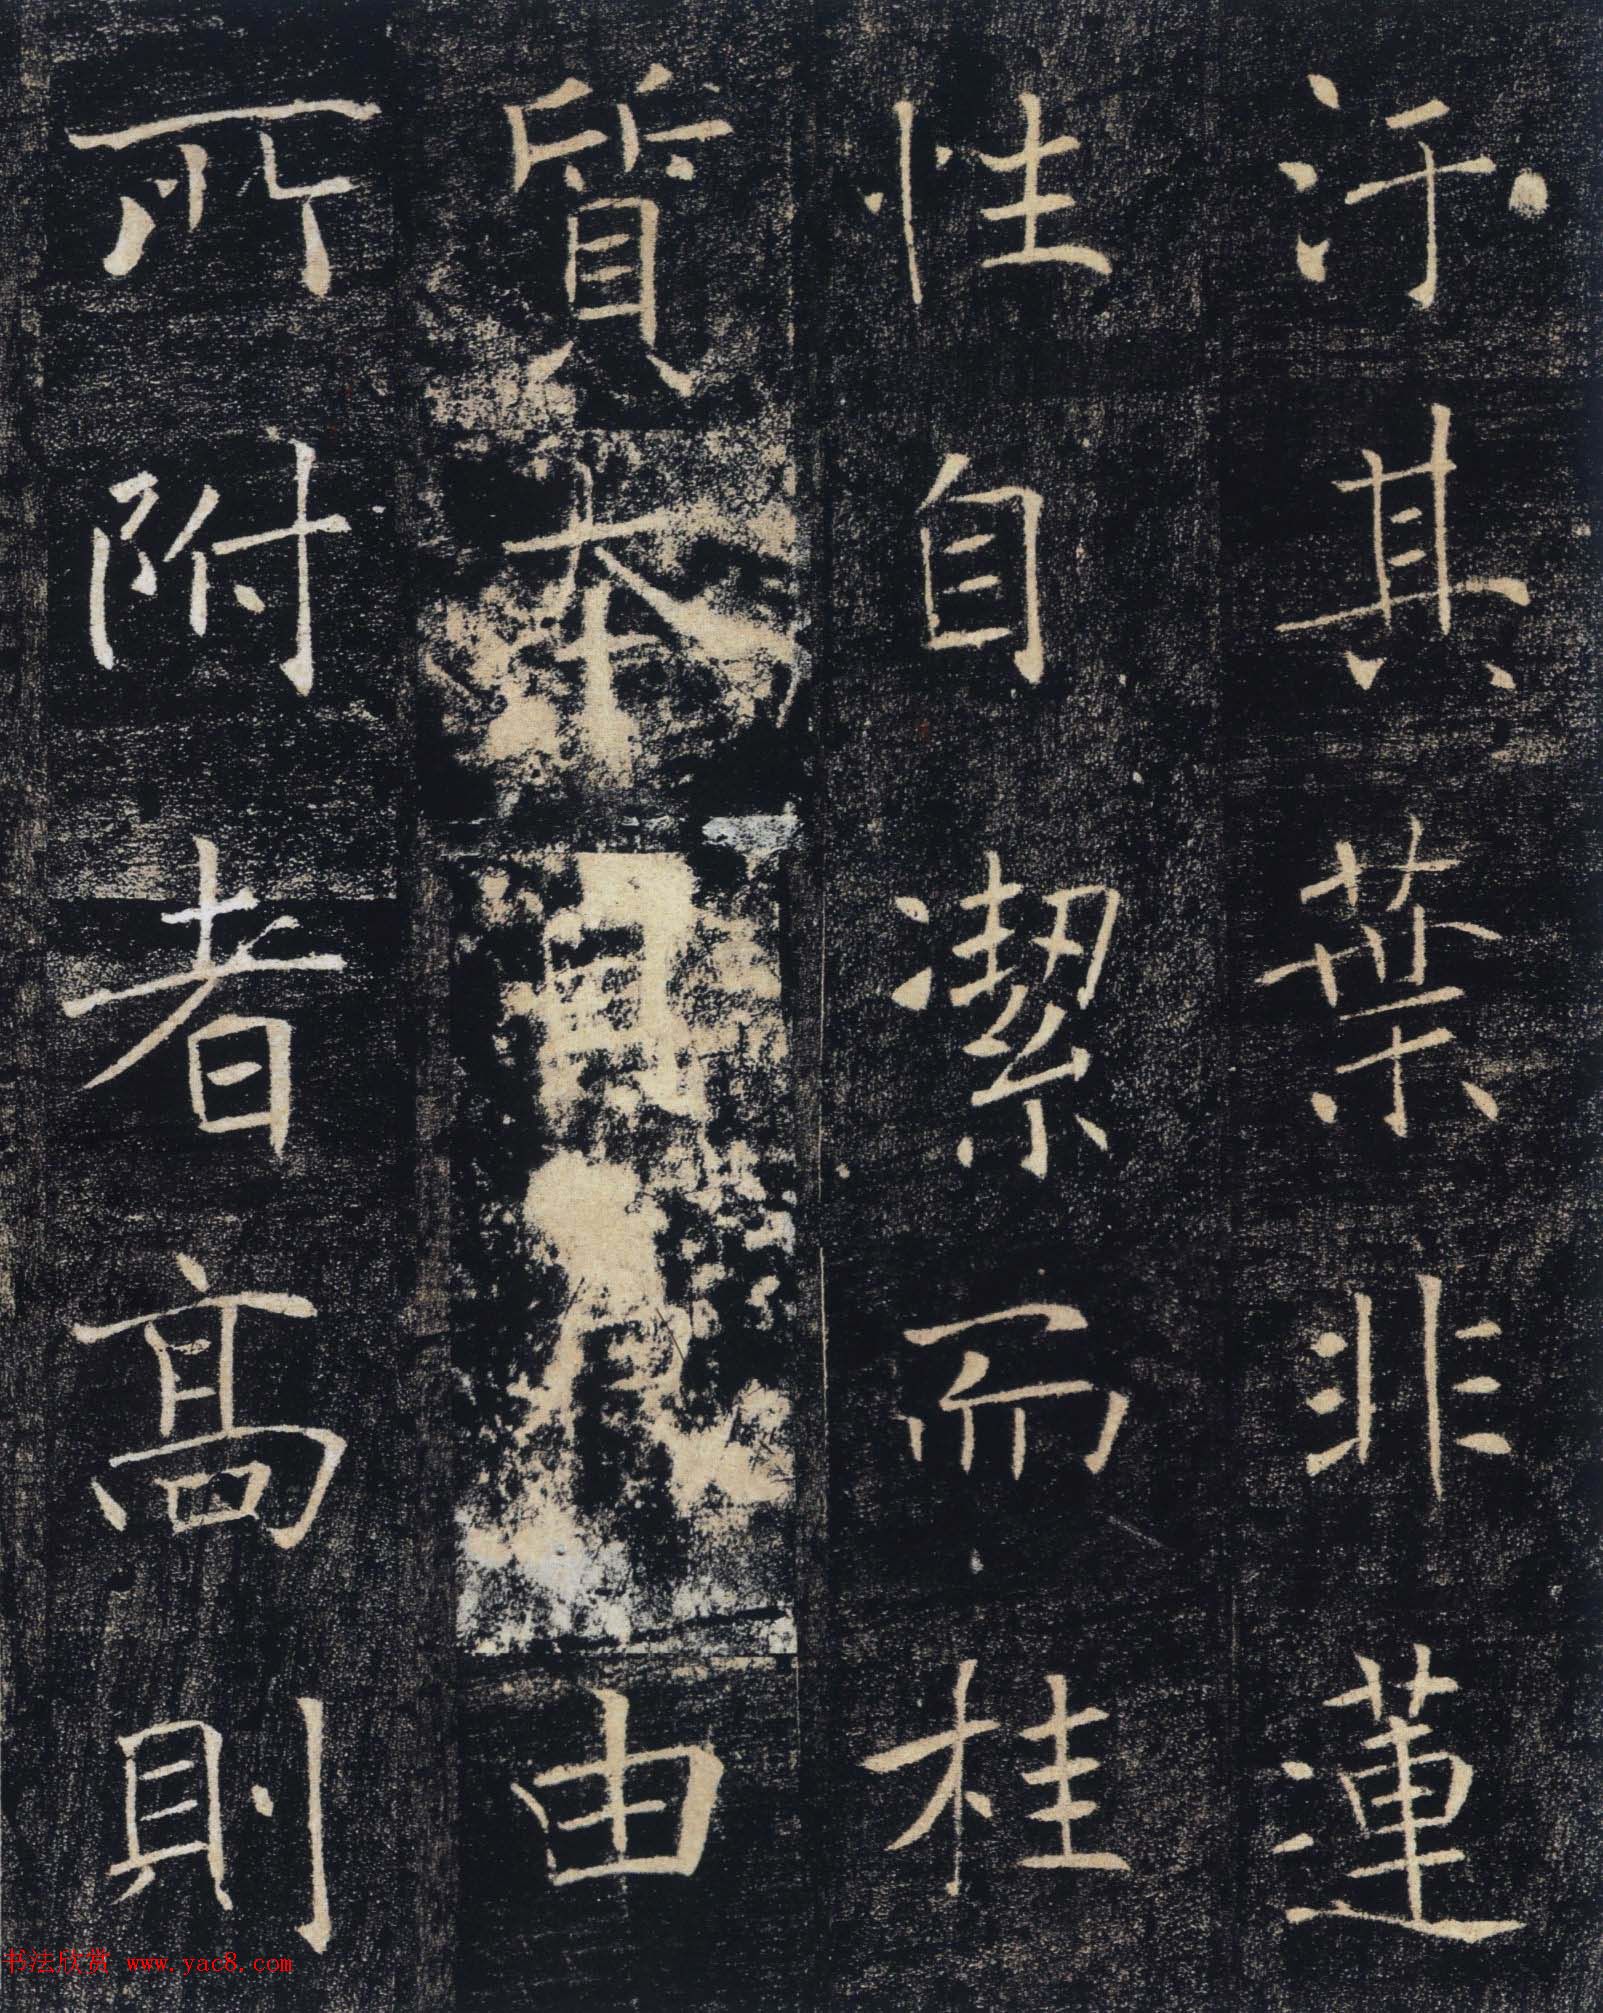 汙其葉非蓮
性自潔而桂
質本由
所附者高則
书法欣赏 www.yac8.com